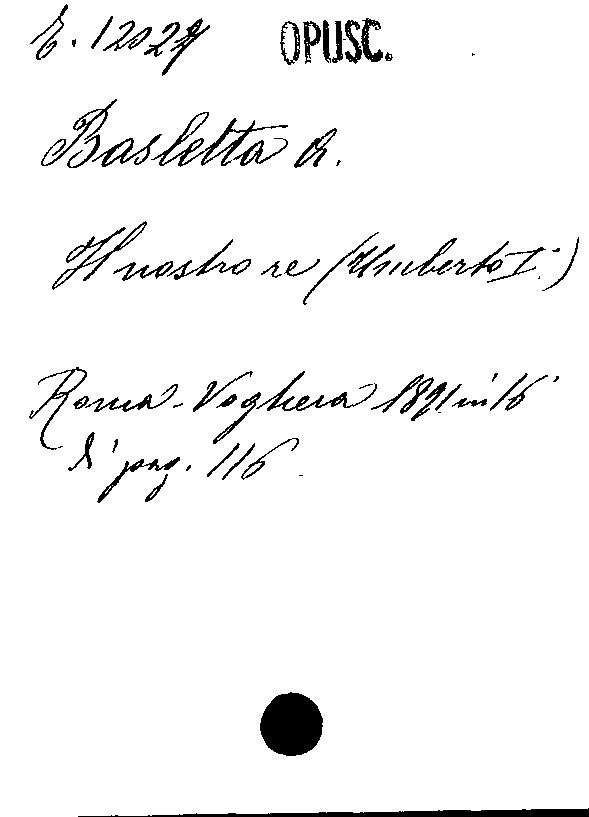 E. 12027 OPUSC.
Basletta A.
Il nostro re (Umberto I.)
Roma - Voghera 1891 in 16
di pag. 116